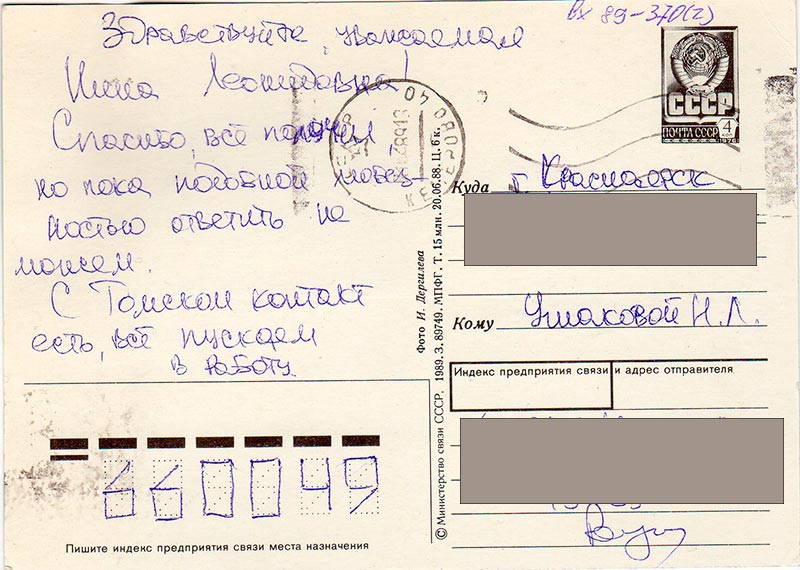 Вх 89-370(2)
Здравствуйте, уважаемая
Нина Леонидовна!
Спасибо, всё получил,
но пока подобной любез-
ностью ответить не
можем.
С Томском контакт
есть, всё пускаем
в работу
СССР
ПОЧТА СССР
4
Куда г. Красноярск
Кому Ушаковой Н.Л.
Индекс предприятия связи и адрес отправителя
660049
Пишите индекс предприятия связи места назначения
© Министерство связи СССР. 1989. З. 89749. МПФГ. Т. 15 млн. 20.06.88. Ц. 6 к.
Фото И. Дергилева